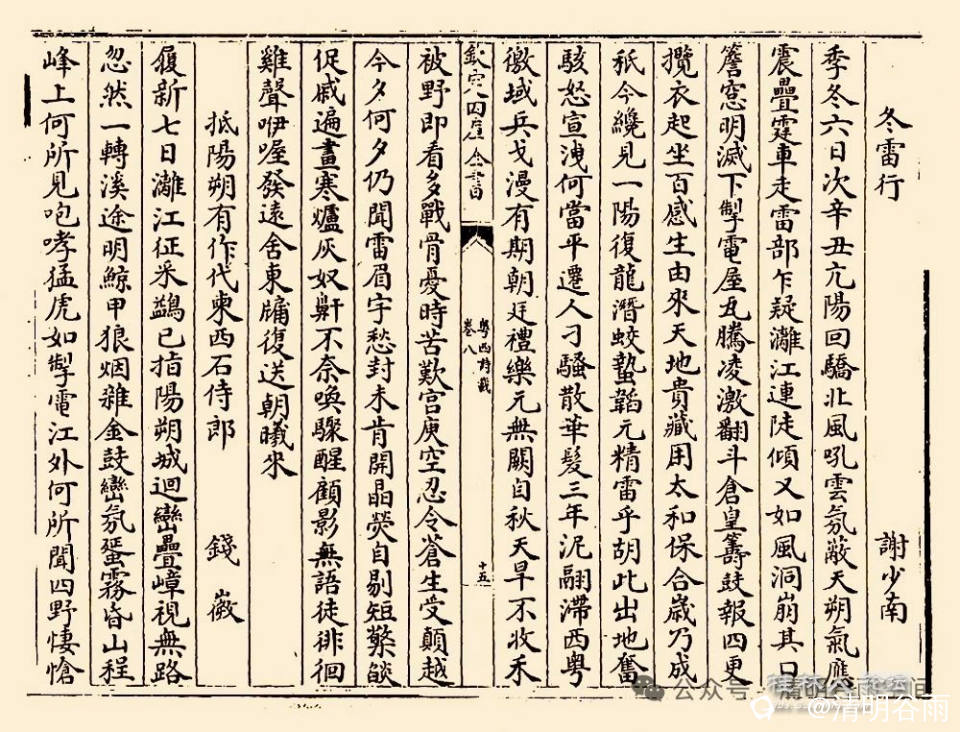 冬雷行 謝少南
季冬六日次辛丑亢陽回驕北風吼雲氛蔽天朔氣應
震疊霆車走雷部乍疑灕江連陡傾又如風洞崩其口
簷窓明滅下掣電屋瓦騰凌激翻斗倉皇籌鼓報四更
攬衣起坐百感生由來天地貴藏用太和保合歲乃成
秪今纔見一陽復龍潛蛟蟄韜元精雷乎胡此出地奮
駭怒宣洩何當平遷人刁騷散華髮三年泥融滯西粤
徼域兵戈漫有期朝廷禮樂元無闕自秋天旱不收禾
欽定四庫全書
粤西詩載
卷八
十五
被野即看多戰骨憂時苦歎宫庾空忍令蒼生受顛越
今夕何夕仍聞雷眉字愁封未肯開晶熒自剔短檠燄
促戚遍畫寒爐灰奴鼾不奈喚驟醒顧影無語徒徘徊
雞聲咿喔發遠舍東牖復送朝曦來
抵陽朔有作代柬西石侍郎 錢
履新七日灕江征采鷁已指陽朔城迴巒疊嶂視無路
忽然一轉溪途明鯨甲狼烟雜金鼓巒氛蜑霧昏山程
峰上何所見咆哮猛虎如掣電江外何所聞四野悽愴
公众号
@清明谷雨